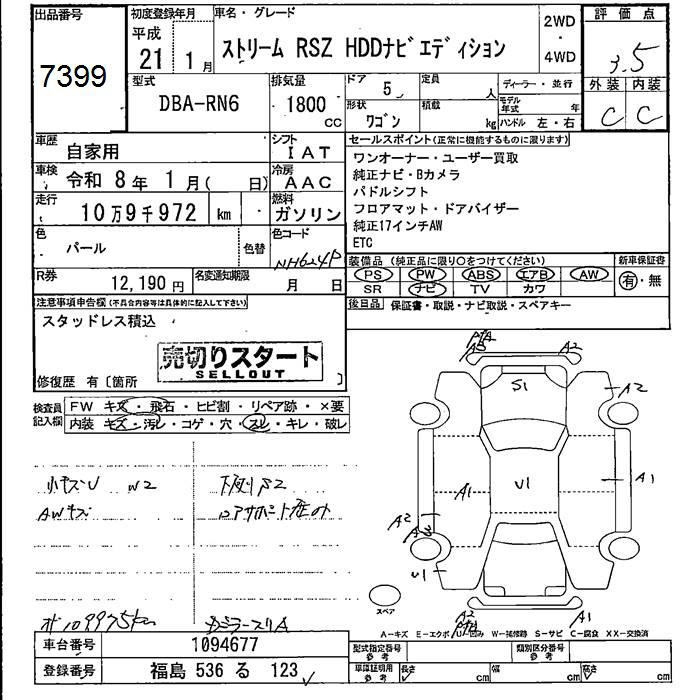 出品番号
7399
初度登録年月
平成
21年 1月
車名・グレード
ストリーム RSZ HDDナビエディション
2WD
・
4WD
評価点
3.5
外装 内装
C C
型式
DBA-RN6
排気量
1800
cc
ドア 5
形状
ワゴン
定員
人
積載
kg
ディーラー・並行
モデル年式 年
ハンドル 左・右
車歴
自家用
シフト
IAT
車検
令和 8年 1月( 日)
冷房
AAC
走行
10万9千972 km
燃料
ガソリン
色
パール
色替
色コード
NH624P
R券
12,190円
名変通知期限
月 日
セールスポイント(正常に機能するものに限ります)
ワンオーナー・ユーザー買取
純正ナビ・Bカメラ
パドルシフト
フロアマット・ドアバイザー
純正17インチAW
ETC
装備品(純正品に限り○をつけてください)
新車保証書
PS PW ABS エアB AW
SR ナビ TV カワ
有・無
後日品 保証書・取説・ナビ取説・スペアキー
注意事項申告欄(不具合内容等は具体的に記入して下さい)
スタッドレス積込
売切りスタート
SELLOUT
修復歴 有〔箇所 〕
検査員記入欄
FW キズ・飛石・ヒビ割・リペア跡・×要
内装 キズ・汚レ・コゲ・穴・スレ・キレ・破レ
小キズU W2
AWキズ
109975km
A2
S1
A2
A1
A1
U1
A2
U1
A1
スペア
A-キズ E-エクボ U-凹み W-補修跡 S-サビ C-腐食 XX-交換済
車台番号
1094677
登録番号
福島 536 る 123
型式指定番号
参考
類別区分番号
参考
車庫証明用
参考
長さ cm
幅 cm
高さ cm